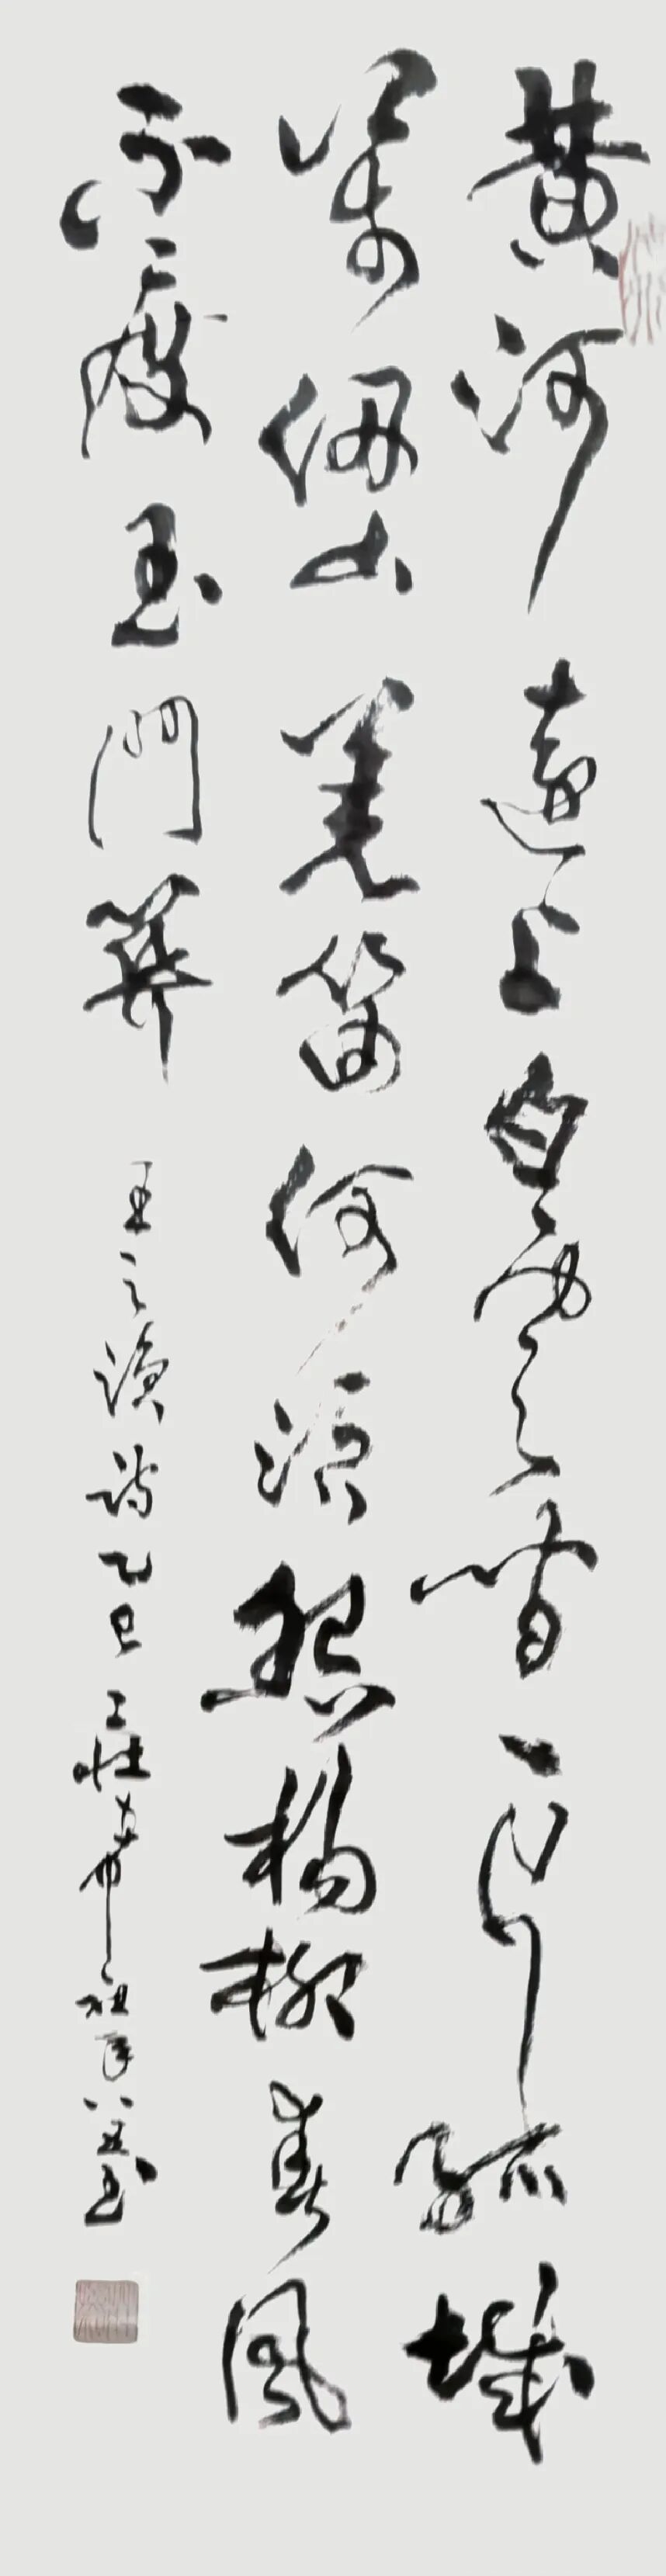 黄河遠上白雲間一片孤城
萬仞山羌笛何須怨楊柳春風
不度玉門關
王之渙詩乙巳